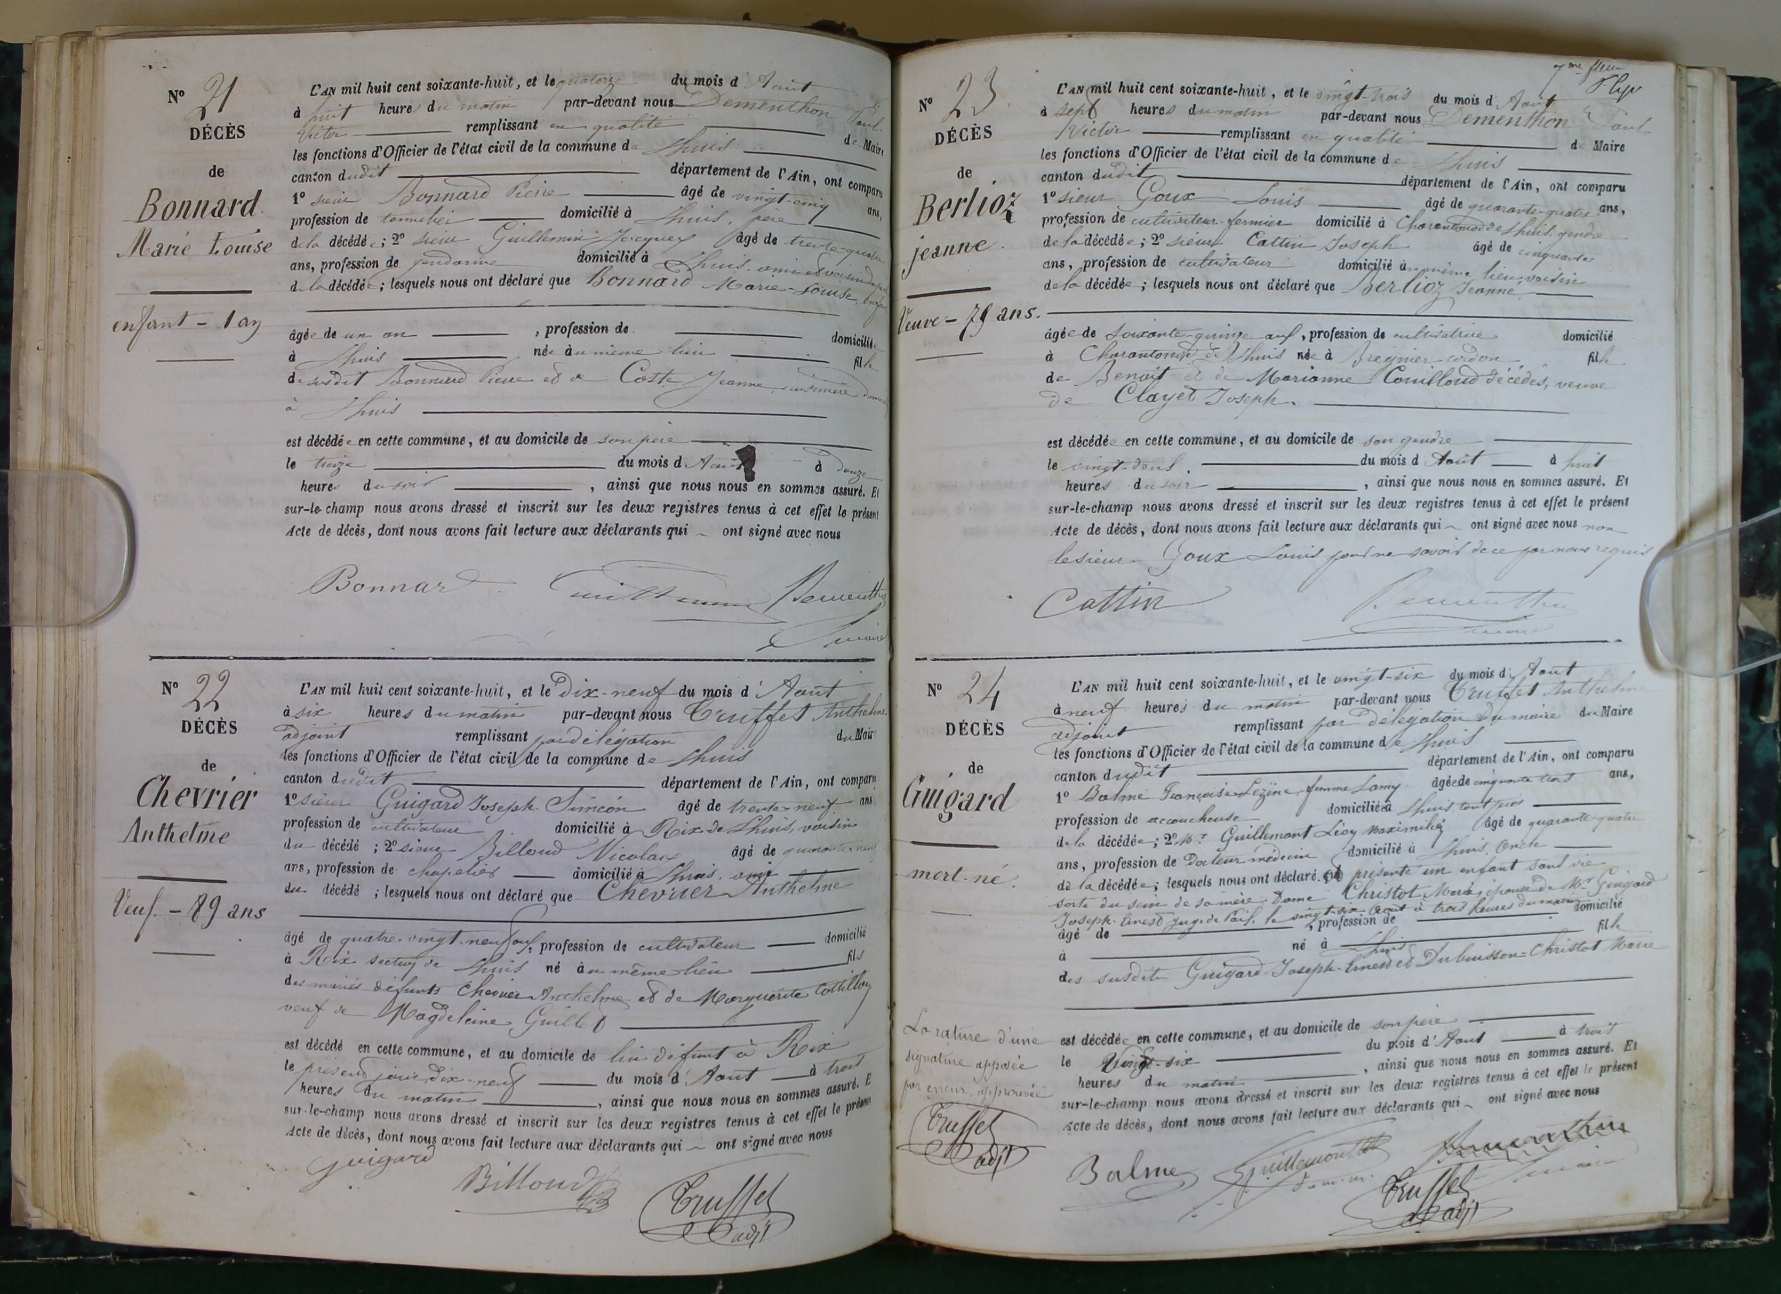 N° 21
DÉCÈS
de
Bonnard
Marie Louise
enfant - 1 an
L'AN mil huit cent soixante-huit, et le quatorze du mois d'Août
à huit heures du matin par-devant nous Dementhon Paul
Victor remplissant en qualité de Maire
les fonctions d'Officier de l'état civil de la commune de Lhuis
canton dudit département de l'Ain, ont comparu
1° sieur Bonnard Pierre âgé de vingt-cinq ans,
profession de tonnelier domicilié à Lhuis, père
de la décédée; 2° sieur Guillemin Jacques âgé de trente-quatre
ans, profession de gendarme domicilié à Lhuis, ami et voisin
de la décédée; lesquels nous ont déclaré que Bonnard Marie-Louise
âgée de un an, profession de domiciliée
à Lhuis née au même lieu fille
de susdit Bonnard Pierre et de Coste Jeanne, cuisinière
à Lhuis
est décédée en cette commune, et au domicile de son père
le treize du mois d'Août à douze
heures du soir, ainsi que nous nous en sommes assuré. Et
sur-le-champ nous avons dressé et inscrit sur les deux registres tenus à cet effet le présent
Acte de décès, dont nous avons fait lecture aux déclarants qui ont signé avec nous
Bonnard Dementhon
maire
N° 22
DÉCÈS
de
Chevrier
Anthelme
Veuf. - 89 ans
L'AN mil huit cent soixante-huit, et le Dix-neuf du mois d'Août
à six heures du matin par-devant nous Truffet Anthelme
adjoint remplissant par délégation du Maire
les fonctions d'Officier de l'état civil de la commune de Lhuis
canton dudit département de l'Ain, ont comparu
1° sieur Guigard Joseph Siméon âgé de trente-neuf ans
profession de cultivateur domicilié à Rix de Lhuis, voisin
du décédé; 2° sieur Billoud Nicolas âgé de quarante-neuf
ans, profession de chapelier domicilié à Lhuis, ami
du décédé; lesquels nous ont déclaré que Chevrier Anthelme
âgé de quatre-vingt-neuf ans, profession de cultivateur domicilié
à Rix section de Lhuis né au même lieu fils
des mariés défunts Chevrier Anthelme et de Marguerite Cottillon
veuf de Magdeleine Guillet
est décédé en cette commune, et au domicile de lui défunt à Rix
le présent jour dix-neuf du mois d'Août à trois
heures du matin, ainsi que nous nous en sommes assuré. Et
sur-le-champ nous avons dressé et inscrit sur les deux registres tenus à cet effet le présent
Acte de décès, dont nous avons fait lecture aux déclarants qui ont signé avec nous
Guigard Billoud Truffet
adjt
N° 23
DÉCÈS
de
Berlioz
jeanne
Veuve - 75 ans.
L'AN mil huit cent soixante-huit, et le vingt-trois du mois d'Août
à sept heures du matin par-devant nous Dementhon Paul
Victor remplissant en qualité de Maire
les fonctions d'Officier de l'état civil de la commune de Lhuis
canton dudit département de l'Ain, ont comparu
1° sieur Goux Louis âgé de quarante-quatre ans,
profession de cultivateur-fermier domicilié à Charantonod de Lhuis, gendre
de la décédée; 2° sieur Cattin Joseph âgé de cinquante
ans, profession de cultivateur domicilié à même lieu, voisin
de la décédée; lesquels nous ont déclaré que Berlioz Jeanne
âgée de soixante-quinze ans, profession de cultivatrice domicilié
à Charantonod de Lhuis née à Bregnier-cordon fille
de Benoit et de Marianne Couilloud décédés, veuve
de Clayet Joseph.
est décédée en cette commune, et au domicile de son gendre
le vingt-deux du mois d Août à huit
heures du soir, ainsi que nous nous en sommes assuré. Et
sur-le-champ nous avons dressé et inscrit sur les deux registres tenus à cet effet le présent
Acte de décès, dont nous avons fait lecture aux déclarants qui ont signé avec nous non
le sieur Goux Louis pour ne savoir de ce par nous requis
Cattin Dementhon
maire
N° 24
DÉCÈS
de
Guigard
mort-né.
L'AN mil huit cent soixante-huit, et le vingt-six du mois d'Août
à neuf heures du matin par-devant nous Truffet Anthelme
adjoint remplissant par délégation du maire du Maire
les fonctions d'Officier de l'état civil de la commune de Lhuis
canton dudit département de l'Ain, ont comparu
1° Balme Françoise Lézine femme Lamy âgée de cinquante trois ans,
profession de accoucheuse domiciliée à Lhuis
de la décédée; 2° Mr Guillemont Léon Maximilien âgé de quarante-quatre
ans, profession de Docteur médecin domicilié à Lhuis, Oncle
de la décédée; lesquels nous ont déclaré et présenté un enfant sans vie
sorti du sein de sa mère Dame Christot Marie, épouse de Mr Guigard
Joseph-Ernest juge de Paix, le vingt-six Août à trois heures du matin
âgé de profession de domicilié
à né à Lhuis fille
des susdits Guigard Joseph-Ernest et Dubuisson-Christot Marie
est décédée en cette commune, et au domicile de son père
le vingt-six du mois d'Août à trois
heures du matin, ainsi que nous nous en sommes assuré. Et
sur-le-champ nous avons dressé et inscrit sur les deux registres tenus à cet effet le présent
Acte de décès, dont nous avons fait lecture aux déclarants qui ont signé avec nous
La rature d'une
signature apposée
par erreur, approuvée
Truffet
adjt
Balme Guillemont Dementhon
maire
Truffet
adjt